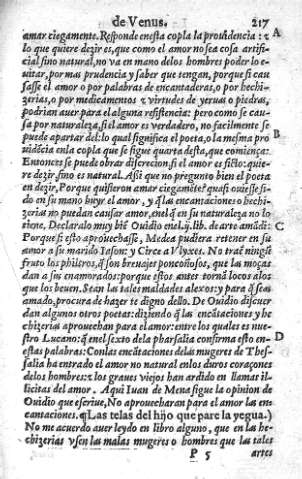 de Venus. 217
amar ciegamente. Responde enesta copla la prouidencia: z A
lo que quiere dezir es, que como el amor no sea cosa artifi-
cial sino natural, no va en mano delos hombres poder lo e-
uitar, por mas prudencia y saber que tengan, porque si cau
sasse el amor o por palabras de encantaderas, o por hechi-
zerias, o por medicamentos z virtudes de yeruas o piedras,
podrian auer para el alguna resistencia: pero como se cau-
sa por naturaleza, si el amor es verdadero, no facilmente se
puede apartar del: lo qual significa el poeta, o la mesma pro B
uidécia enla copla que se sigue quarta desta, que comiença:
Entonces se puede obrar discrecion si el amor es ficto: quie-
re dezir, sino es natural. Assi que no pregunto bien el poeta
en dezir, Porque quisieron amar ciegaméte? quasi ouiesse si-
do en su mano huyr el amor, y q̃ las encantaciones o hechi-
zerias no puedan causar amor, enel q̃ en su naturaleza no lo
tiene, Declaralo muy biẽ Ouidio enel.ij.lib. de arte amãdi: C
Porque si esto aprouechasse, Medea pudiera retener en su
amor a su marido Iason: y Circe a Vlyxes. No traẽ ningũ
fruto los philtros, q̃ son breuajes ponçoñosos, que las moças
dan a sus enamorados: porque estos antes tornã locos alos
que los beuen. Sean las tales maldades alexos: y para q̃ seas
amado, procura de hazer te digno dello. De Ouidio discuer
dan algunos otros poetas: diziendo q̃ las encãtaciones y he
chizerias aprouechan para el amor: entre los quales es nue-
stro Lucano: q̃ enel sexto dela pharsalia confirma esto en- D
estas palabras: Con las encãtaciones delas mugeres de Thes-
salia ha entrado el amor no natural enlos duros coraçones
delos hombres: z los graues viejos han ardido en llamas il-
licitas del amor. Aqui Iuan de Mena sigue la opinion de
Ouidio que escriue, No aprouecharan para el amor las en-
cantaciones. ¶(Las telas del hijo que pare la yegua.)
No me acuerdo auer leydo en libro alguno, que en las he-
chizerias vsen las malas mugeres o hombres que las tales
P 5 artes